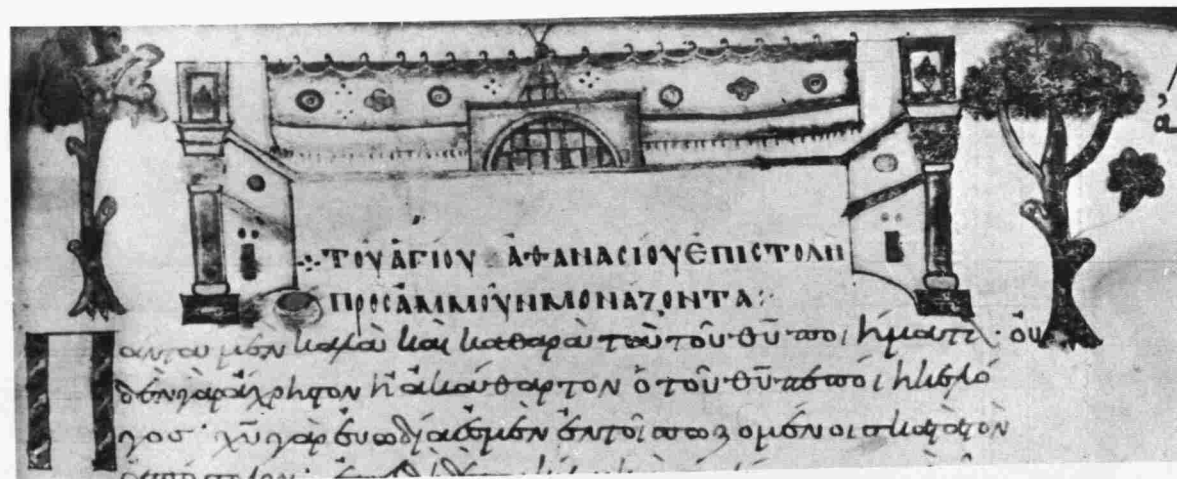 ά
·:· ΤΟΥ ἉΓΙΟΥ ἈΘΑΝΑCΙΟΥ ἘΠΙCΤΟΛΗ
ΠΡΟC ἈΜΜΟΥΝ ΜΟΝΑΖΟΝΤΑ:
Πάντα μὲν καλὰ καὶ καθαρὰ τὰ τοῦ θῦ ποιήματα· οὐ
δὲν γὰρ ἄχρηστον ἢ ἀκάθαρτον ὁ τοῦ θῦ πεποίηκε λό
γος· χῦ γὰρ εὐωδία ἐσμὲν ἐν τοῖς σωζομένοις κατὰ τὸν